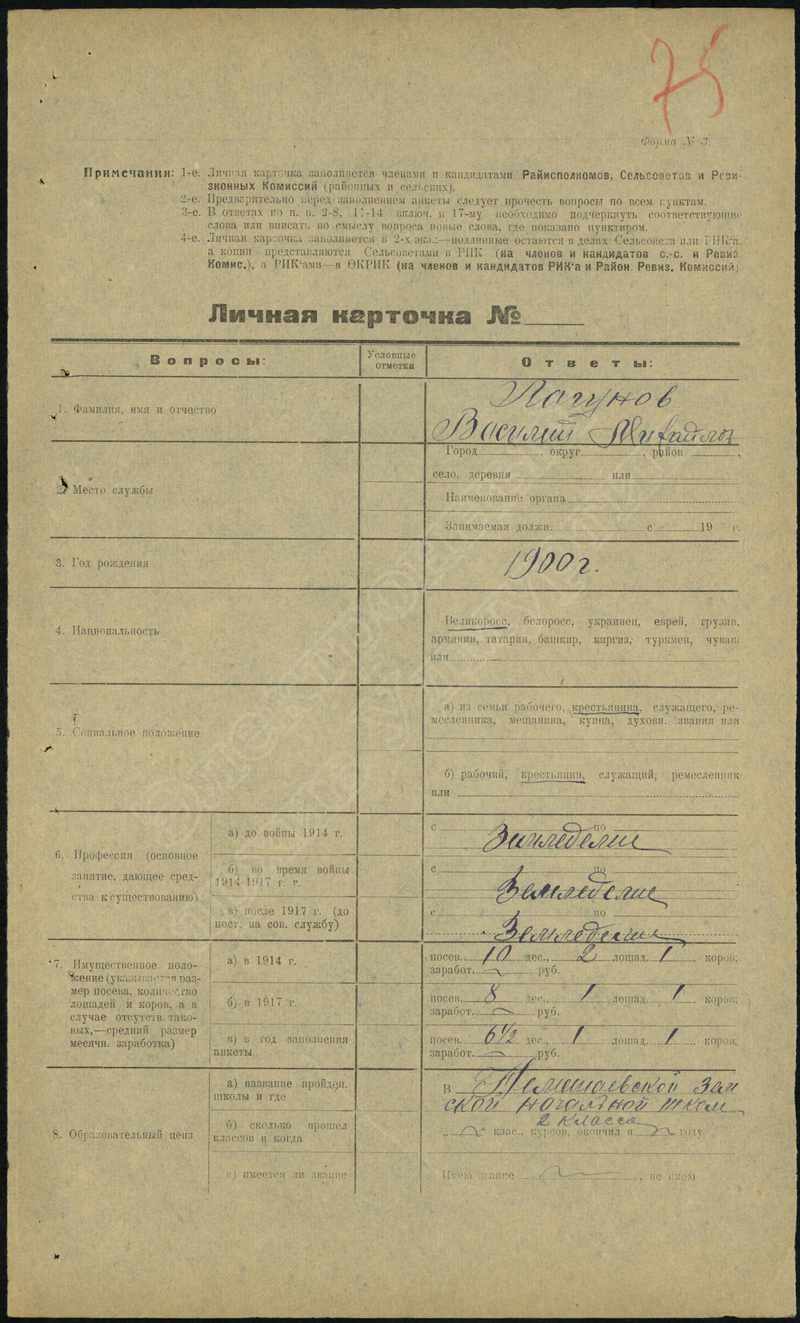 75
Форма № 3.
Примечания: 1-е. Личная карточка заполняется членами и кандидатами Райисполкомов, Сельсоветов и Реви-
зионных Комиссий (районных и сельских).
2-е. Предварительно перед заполнением анкеты следует прочесть вопросы по всем пунктам.
3-е. В ответах по п. п. 2-8, 11-14 включ. и 17-му необходимо подчеркнуть соответствующие
слова или вписать по смыслу вопроса новые слова, где показано пунктиром.
4-е. Личная карточка заполняется в 2-х экз.—подлинные остаются в делах Сельсовета или РИК'а,
а копии представляются Сельсоветами в РИК (на членов и кандидатов с.-с. и Ревиз.
Комис.), а РИК'ами—в ОКРИК (на членов и кандидатов РИК'а и Район. Ревиз. Комиссий)
Личная карточка №
Вопросы:
Условные отметки
Ответы:
1. Фамилия, имя и отчество
Лагунов
Василий Михайлов
2. Место службы
Город , округ , район ,
село, деревня или
Наименование органа
Занимаемая должн. с 19 г.
3. Год рождения
1900 г.
4. Национальность
Великоросс, белоросс, украинец, еврей, грузин,
армянин, татарин, башкир, киргиз, туркмен, чуваш
или
5. Социальное положение
а) из семьи рабочего, крестьянина, служащего, ре-
месленника, мещанина, купца, духовн. звания или
б) рабочий, крестьянин, служащий, ремесленник
или
6. Профессия (основное
занятие, дающее сред-
ства к существованию)
а) до войны 1914 г.
с по
Земледелие
б) во время войны
1914-1917 г. г.
с по
Земледелие
в) после 1917 г. (до
пост. на сов. службу)
с по
Земледелие
7. Имущественное поло-
жение (указывается раз-
мер посева, количество
лошадей и коров, а в
случае отсутств. тако-
вых,—средний размер
месячн. заработка)
а) в 1914 г.
посев. 10 дес., 2 лошад. 1 коров;
заработ. руб.
б) в 1917 г.
посев. 8 дес., 1 лошад. 1 коров;
заработ. руб.
в) в год заполнения
анкеты
посев. 6 1/2 дес., 1 лошад. 1 коров;
заработ. руб.
8. Образовательный ценз
а) название пройден.
школы и где
В
ской начальной школ
б) сколько прошел
классов и когда
2 класса
клас., курсов, окончил в году
в) имеется ли звание
Имею звание , не имею